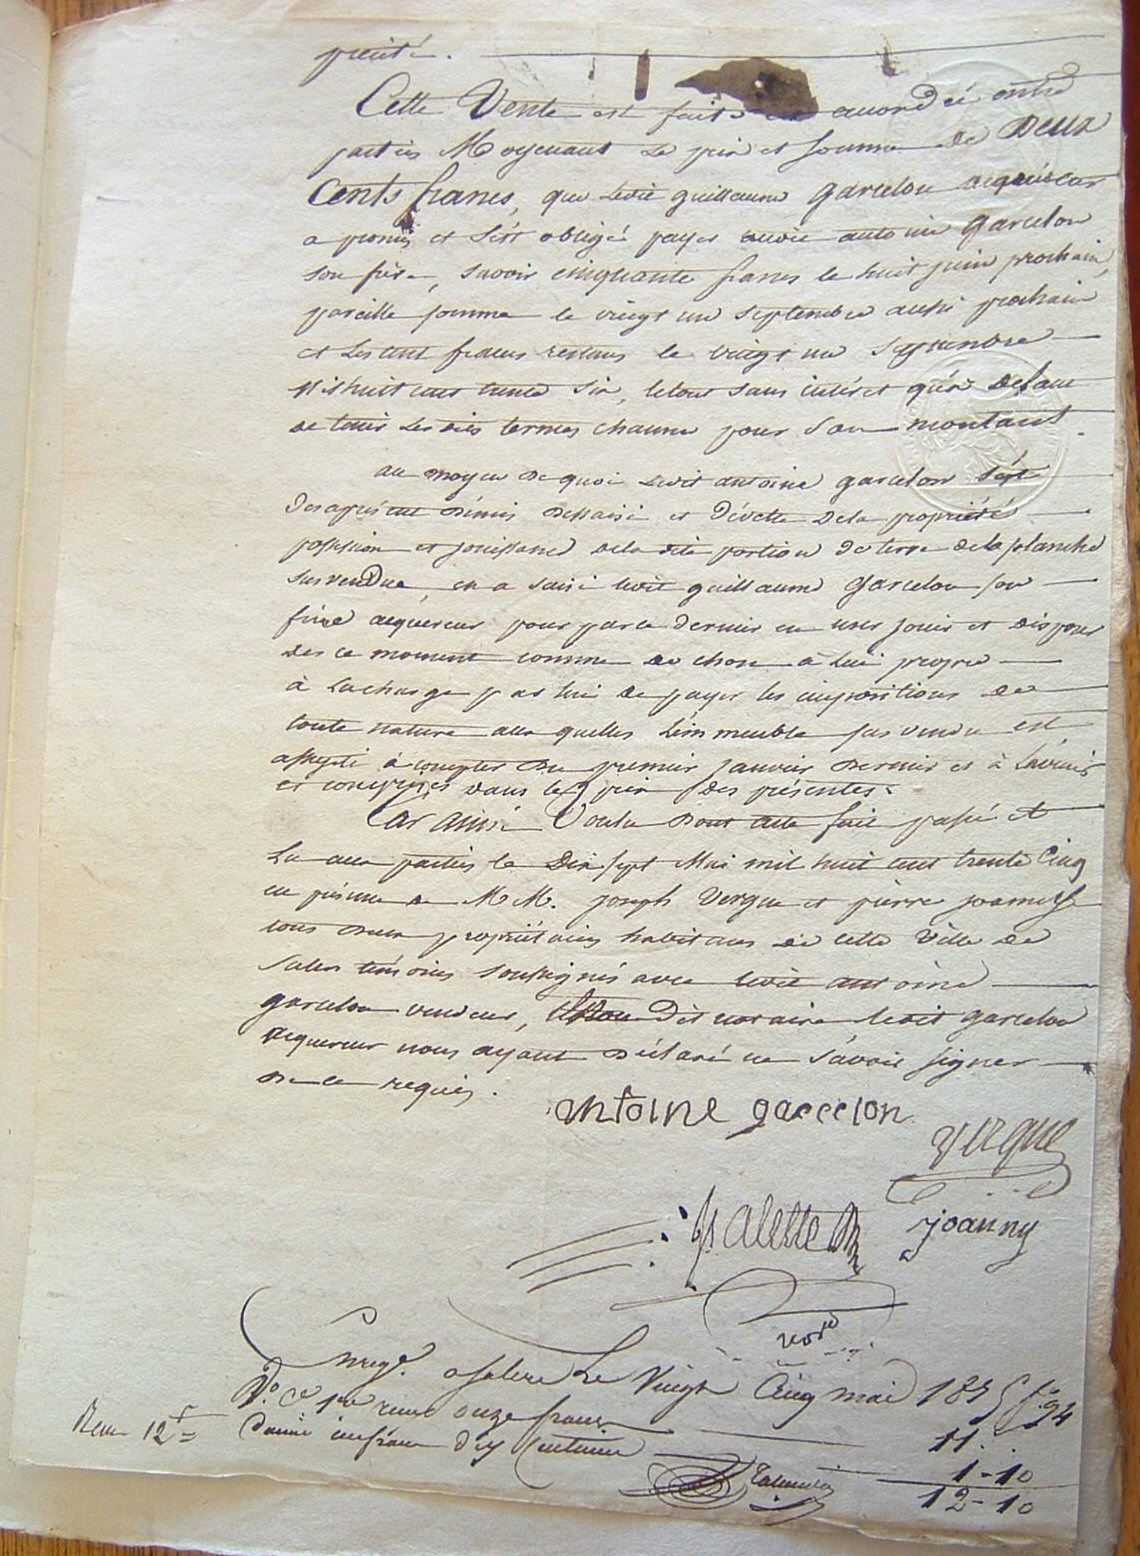 Cette Vente est faite accordée entre
parties Moyenant Le prix et somme de Deux
Cents francs, que ledit guillaume garcelon acquéreur
a promis et s'est obligé payer audit antoine garcelon
son frère, savoir cinquante francs le huit juin prochain,
pareille somme le vingt un septembre aussi prochain
et les cent francs restans le vingt un septembre
Mil huit cent trente six, le tout sans intérêt qu'à defaut
de tenir lesdits termes chacun pour son montant.
au moyen de quoi Ledit antoine garcelon s'est
des a présent démis dessaisi et dévetu de la propriété
possession et jouissance de la dite portion de terre de la planche
sus vendue, en a saisi ledit guillaume garcelon son
frère acquereur pour par ce dernier en user jouir et disposer
des ce moment comme de chose à lui propre
à la charge par lui de payer les impositions de
toute nature aux quelles l'immeuble sus vendu est
assujeti à compter du premier janvier dernier et à l'avenir
et comprises dans le prix des présentes.
Car ainsi Voulu dont acte fait passé et
Lu aux parties le Dix sept Mai mil huit cent trente Cinq
en présence de M M. joseph Vergne et pierre joanny
tous deux propriétaires habitans de cette Ville de
Salers témoins soussignés avec ledit antoine
garcelon vendeur, dit notaire ledit garcelon
acquereur nous ayant Déclaré ne Savoir signer
De ce requis.
antoine garcelon
vergne
joanny
nore
Enregé. a Salers Le Vingt Cinq mai 1835 fo 94
Vo Ce 1re reçu onze francs 11.
Dixième un franc dix Centimes 1-10
12-10